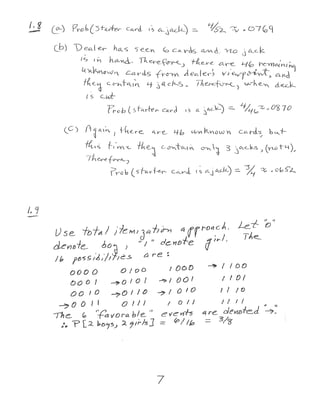 1.8 (a) Prob (starter card is a jack) = 4/52 ≈ .0769
(b) Dealer has seen 6 cards and no jack
is in hand. Therefore, there are 46 remaining
unknown cards from dealer's viewpoint, and
they contain 4 jacks. Therefore, when deck
is cut
Prob (starter card is a jack) = 4/46 ≈ .0870
(c) Again, there are 46 unknown cards, but
this time they contain only 3 jacks, (not 4),
Therefore,
Prob (starter card is a jack) = 3/4 ≈ .0652
1.9
Use total itemization approach. Let "0"
denote boy, "1" denote girl. The
16 possibilities are:
0000 0100 1000 →1100
0001 →0101 →1001 1101
0010 →0110 →1010 1110
→0011 0111 1011 1111
The 6 "favorable" events are denoted "→".
∴ P[2 boys, 2 girls] = 6/16 = 3/8
7